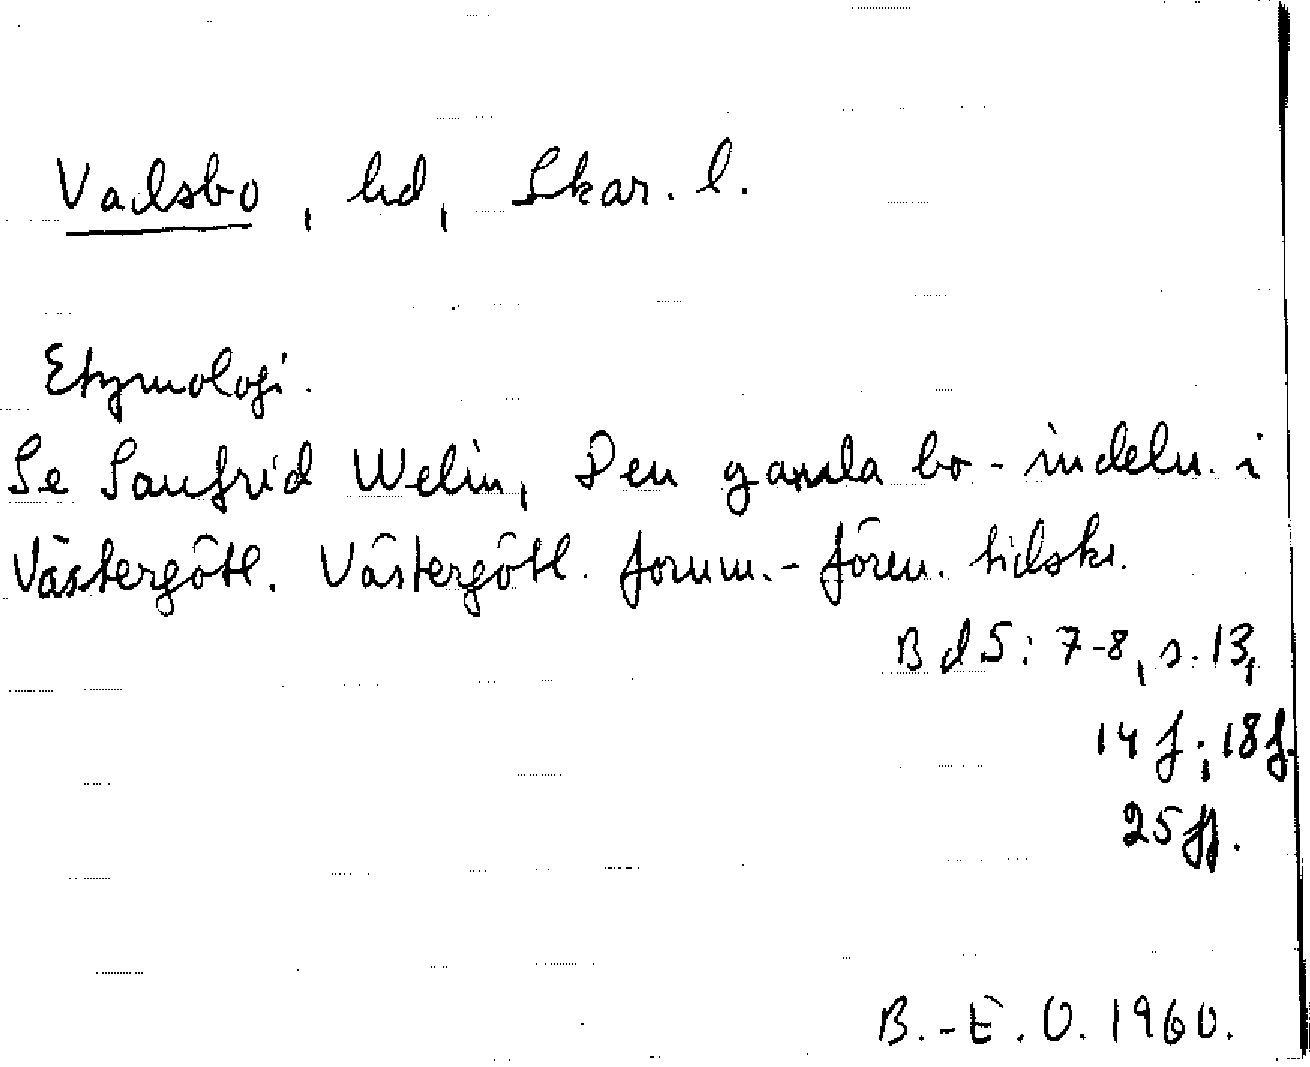 Vadsbo, hd, Skar. l.
Etymologi.
Se Sanfrid Welin, Den gamla bo-indeln. i
Västergötl. Västergötl. fornm.-fören. tidskr.
Bd 5: 7-8, s. 13,
14 f., 18 f.
25 ff.
B.-E. O. 1960.